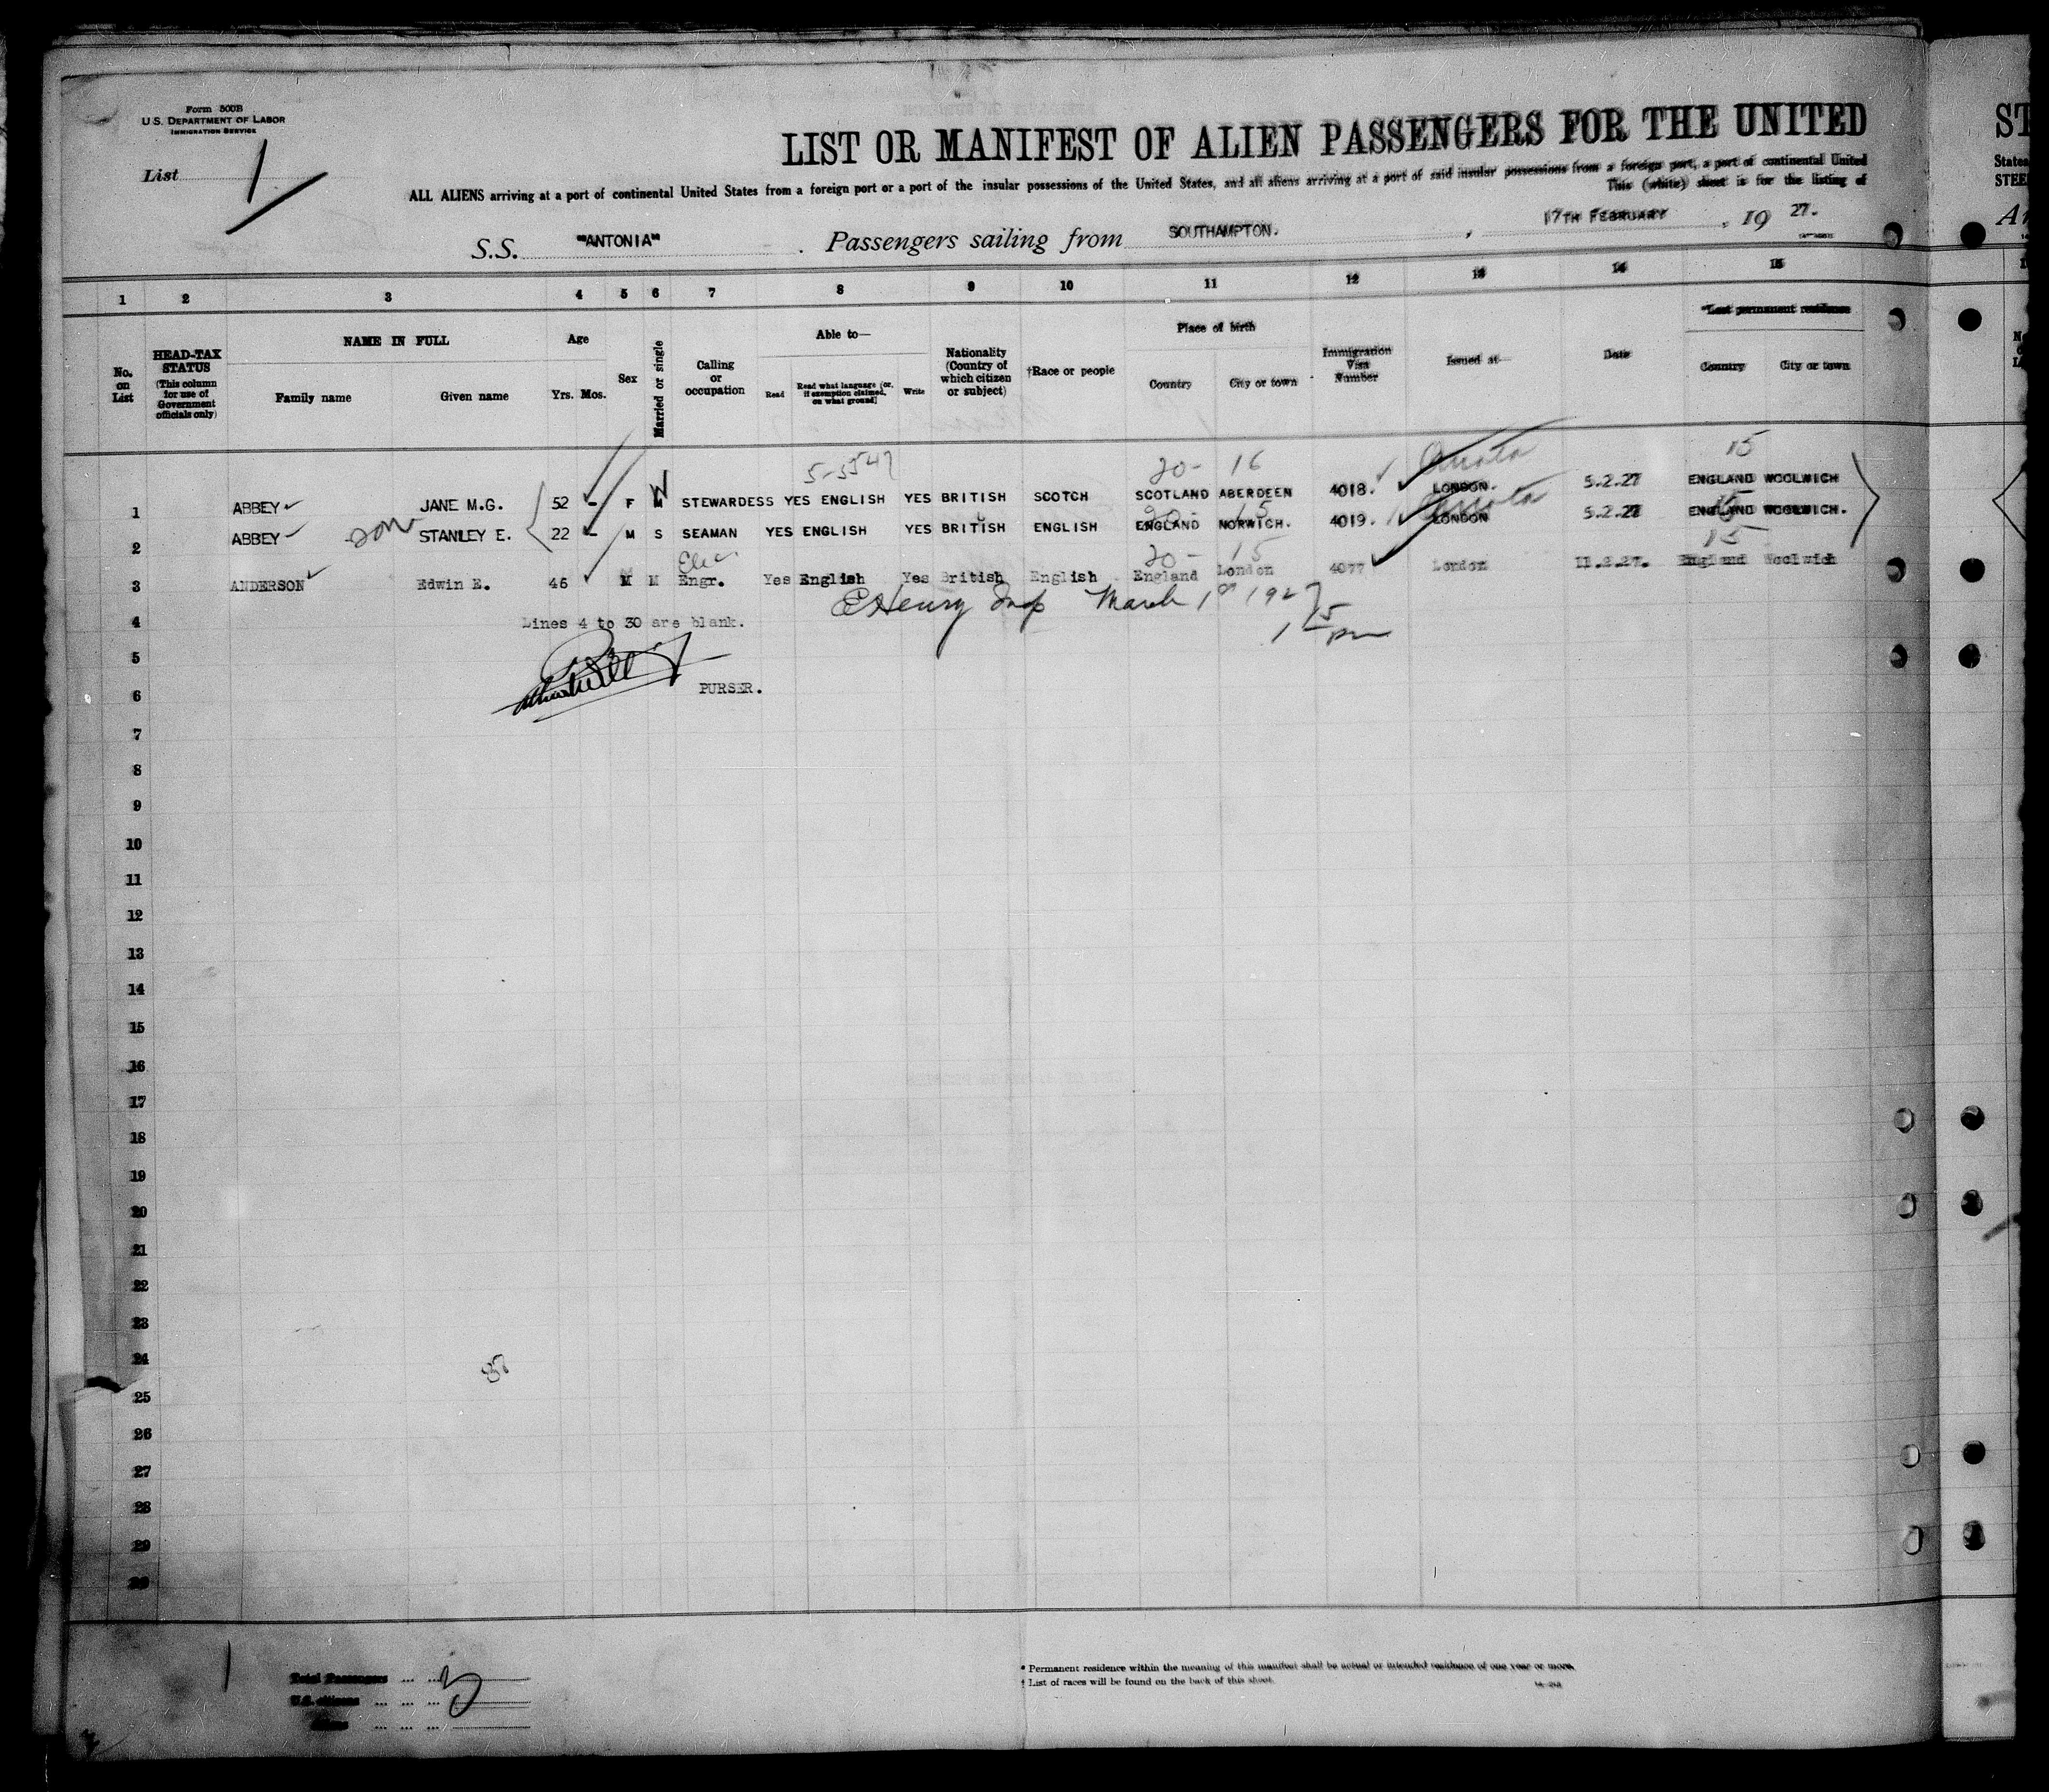 Form 500B
U.S. DEPARTMENT OF LABOR
IMMIGRATION SERVICE
List 1
LIST OR MANIFEST OF ALIEN PASSENGERS FOR THE UNITED
ST
ALL ALIENS arriving at a port of continental United States from a foreign port or a port of the insular possessions of the United States, and all aliens arriving at a port of said insular possessions from a foreign port, a port of continental United
States
This (white) sheet is for the listing of
STEE
S.S. "ANTONIA". Passengers sailing from SOUTHAMPTON. , 17TH FEBRUARY , 19 27.
1 2 3 4 5 6 7 8 9 10 11 12 13 14 15
No. on List
HEAD-TAX STATUS (This column for use of Government officials only)
NAME IN FULL
Family name Given name
Age
Yrs. Mos.
Sex
Married or single
Calling or occupation
Able to—
Read Read what language (or, if exemption claimed, on what ground) Write
Nationality (Country of which citizen or subject)
†Race or people
Place of birth
Country City or town
Immigration Visa Number
Issued at—
Date
*Last permanent residence
Country City or town
5-3547 20- 16 Quota 15
1 ABBEY JANE M.G. 52 - F M W STEWARDESS YES ENGLISH YES BRITISH SCOTCH SCOTLAND ABERDEEN 4018. LONDON. 5.2.27 ENGLAND WOOLWICH
20- 15 Quota 15
2 ABBEY son STANLEY E. 22 - M S SEAMAN YES ENGLISH YES BRITISH ENGLISH ENGLAND NORWICH. 4019. LONDON 5.2.27 ENGLAND WOOLWICH.
Elec. 20- 15 15
3 ANDERSON Edwin E. 46 M M Engr. Yes English Yes British English England London 4077 London 11.2.27. England Woolwich
E Henry Insp March 1st 1927
4 Lines 4 to 30 are blank.
1 15 pm
5
6 PURSER.
7
8
9
10
11
12
13
14
15
16
17
18
19
20
21
22
23
24
25
26
27
28
29
30
Total Passengers ... ...
U.S. citizens ... ... ...
Aliens ... ... ...
* Permanent residence within the meaning of this manifest shall be actual or intended residence of one year or more.
† List of races will be found on the back of this sheet.